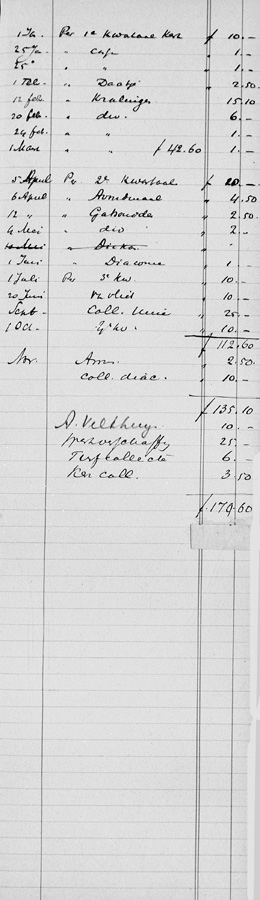 1 Jan. Per 1e Kwartaal Kerk f 10.-
25 Jan " " 1.-
25 " " " " 1.-
1 Feb. " " 2.50
12 feb. " Kralingen " 15.10
20 feb. " div. " 6.-
24 feb. " " " 1.-
1 Maart " " f 42.60 " 1.-
5 April Per 2e Kwartaal f 20.-
6 April " Avondmaal " 4.50
12 " " " 2.50
4 Mei " div " 2.-
10 Mei " "
1 Juni " Diaconie " 1.-
1 Juli Per 3e kw. " 10.-
20 Juni " " 10.-
Sept. Coll. Unie " 25.-
1 Oct. " 4e kw. " 10.-
f 112.60
Nov. Avm. " 2.50
coll. diac. " 10.-
f 135.10
A. Velthuys 10.-
25.-
Turfcollecte 6.-
Ker coll. 3.50
f. 179.60